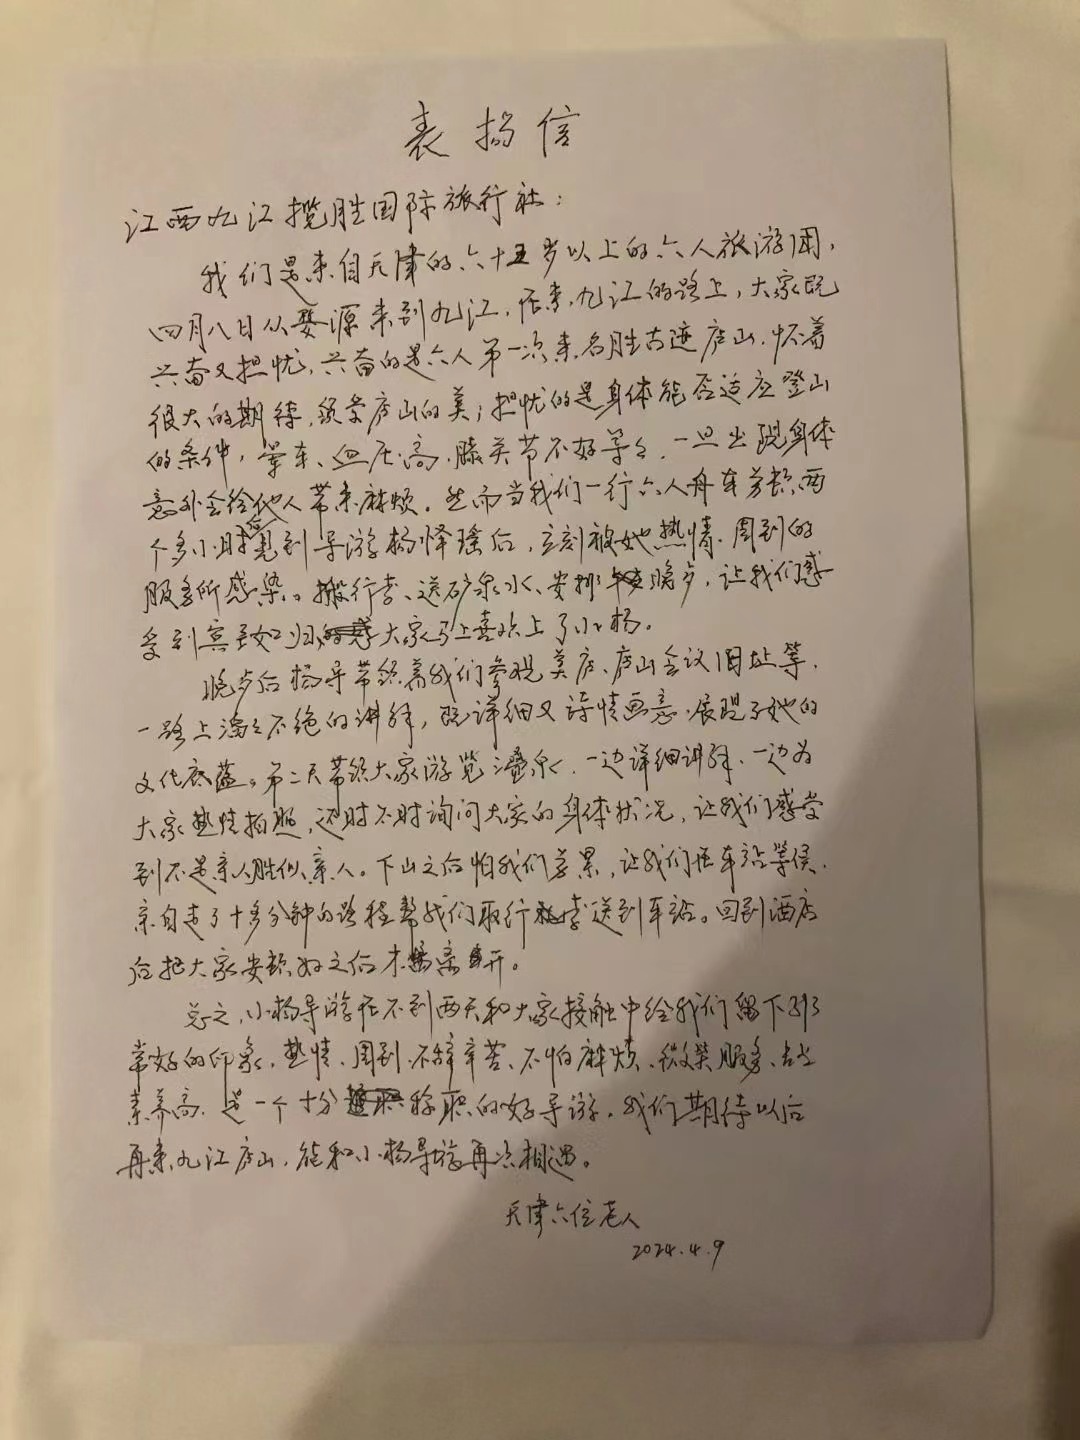 表扬信
江西九江揽胜国际旅行社：
我们是来自天津的六十五岁以上的六人旅游团，
四月八日从婺源来到九江，在来九江的路上，大家既
兴奋又担忧，兴奋的是六人第一次来名胜古迹庐山，怀着
很大的期待，领略庐山的美；担忧的是身体能否适应登山
的条件，晕车、血压高、膝关节不好等等，一旦出现身体
意外会给他人带来麻烦。然而当我们一行六人舟车劳顿两
个多小时后见到导游杨怿瑶后，立刻被她热情、周到的
服务所感染。搬行李、送矿泉水、安排晚步，让我们感
受到宾至如归，大家马上喜欢上了小杨。
晚步后杨导带领着我们参观美庐、庐山会议旧址等，
一路上滔滔不绝的讲解，既详细又诗情画意，展现了她的
文化底蕴。第二天带领大家游览三叠泉，一边详细讲解、一边为
大家热情拍照，还时不时询问大家的身体状况，让我们感受
到不是亲人胜似亲人。下山之后怕我们劳累，让我们在车站等候，
亲自走了十多分钟的路程帮我们取行李送到车站。回到酒店
后把大家安顿好之后才离开。
总之，小杨导游在不到两天和大家接触中给我们留下非
常好的印象，热情、周到、不辞辛苦、不怕麻烦、微笑服务、
素养高，是一个十分称职的好导游。我们期待以后
再来九江庐山，能和小杨导游再次相遇。
天津六位老人
2024.4.9